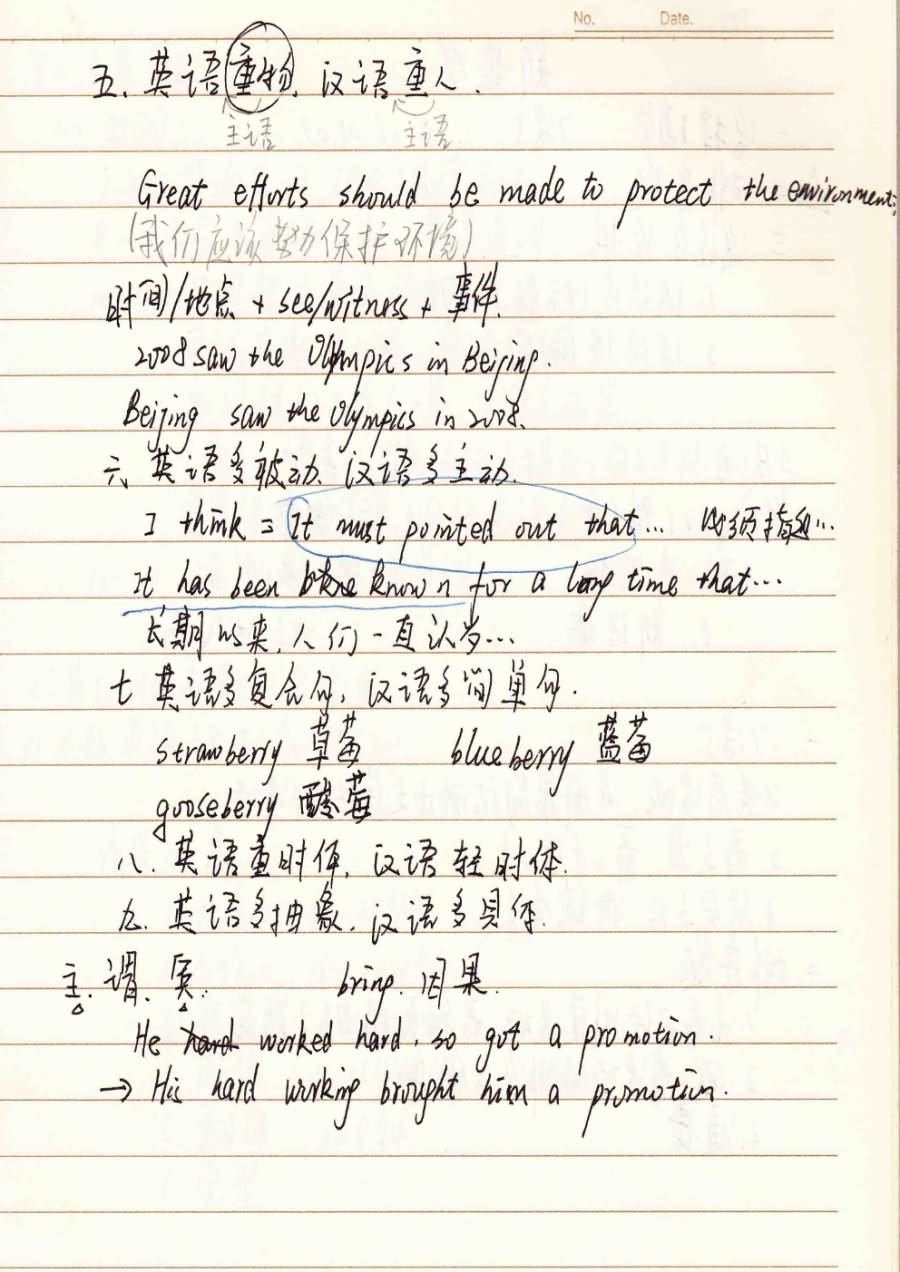 No. Date.
五、英语重物,汉语重人.
主语 主语
Great efforts should be made to protect the environment.
(我们应该努力保护环境)
时间/地点 + see/witness + 事件.
2008 saw the Olympics in Beijing.
Beijing saw the Olympics in 2008.
六、英语多被动、汉语多主动.
I think = It must pointed out that... 必须指出...
It has been known for a long time that...
长期以来,人们一直认为...
七 英语多复合句,汉语多简单句.
strawberry 草莓 blueberry 蓝莓
gooseberry 醋莓
八、英语重时体,汉语轻时体.
九、英语多抽象,汉语多具体.
主、谓、宾. bring. 因果.
He hard worked hard, so got a promotion.
→ His hard working brought him a promotion.